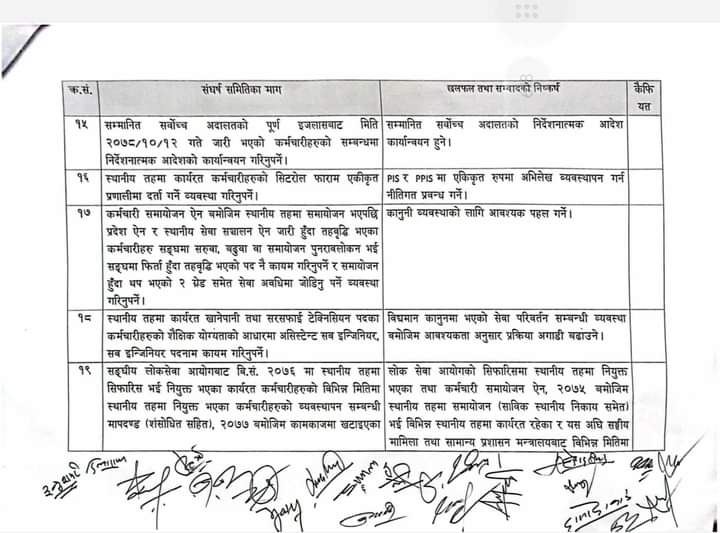 क्र.सं. संघर्ष समितिका माग छलफल तथा सम्वादको निष्कर्ष कैफियत
१५ सम्मानित सर्वोच्च अदालतको पूर्ण इजलासबाट मिति
२०७८/१०/१२ गते जारी भएको कर्मचारीहरुको सम्बन्धमा
निर्देशनात्मक आदेशको कार्यान्वयन गरिनुपर्ने।
सम्मानित सर्वोच्च अदालतको निर्देशनात्मक आदेश
कार्यान्वयन हुने।
१६ स्थानीय तहमा कार्यरत कर्मचारीहरुको सिटरोल फाराम एकीकृत
प्रणालीमा दर्ता गर्ने व्यवस्था गरिनुपर्ने।
PIS र PPIS मा एकिकृत रुपमा अभिलेख व्यवस्थापन गर्न
नीतिगत प्रवन्ध गर्ने।
१७ कर्मचारी समायोजन ऐन बमोजिम स्थानीय तहमा समायोजन भएपछि
प्रदेश ऐन र स्थानीय सेवा सञ्चालन ऐन जारी हुँदा तहबृद्धि भएका
कर्मचारीहरु सङ्घमा सरुवा, बढुवा वा समायोजन पुनरावलोकन भई
सङ्घमा फिर्ता हुँदा तहबृद्धि भएको पद नै कायम गरिनुपर्ने र समायोजन
हुँदा थप भएको २ ग्रेड समेत सेवा अवधिमा जोडिनु पर्ने व्यवस्था
गरिनुपर्ने।
कानुनी व्यवस्थाको लागि आवश्यक पहल गर्ने।
१८ स्थानीय तहमा कार्यरत खानेपानी तथा सरसफाई टेक्निसियन पदका
कर्मचारीहरुको शैक्षिक योग्यताको आधारमा असिस्टेन्ट सब इन्जिनियर,
सब इन्जिनियर पदनाम कायम गरिनुपर्ने।
विद्यमान कानुनमा भएको सेवा परिवर्तन सम्बन्धी व्यवस्था
बमोजिम आवश्यकता अनुसार प्रक्रिया अगाडी बढाउने।
१९ सङ्घीय लोकसेवा आयोगबाट बि.सं. २०७६ मा स्थानीय तहमा
सिफारिस भई नियुक्त भएका कार्यरत कर्मचारीहरुको बिभिन्न मितिमा
स्थानीय तहमा नियुक्त भएका कर्मचारीहरुको व्यवस्थापन सम्बन्धी
मापदण्ड (शंसोधित सहित), २०७७ बमोजिम कामकाजमा खटाइएका
लोक सेवा आयोगको सिफारिसमा स्थानीय तहमा नियुक्त
भएका तथा कर्मचारी समायोजन ऐन, २०७५ बमोजिम
स्थानीय तहमा समायोजन (साविक स्थानीय निकाय समेत)
भई विभिन्न स्थानीय तहमा कार्यरत रहेका र यस अघि सङ्घीय
मामिला तथा सामान्य प्रशासन मन्त्रालयबाट बिभिन्न मितिमा